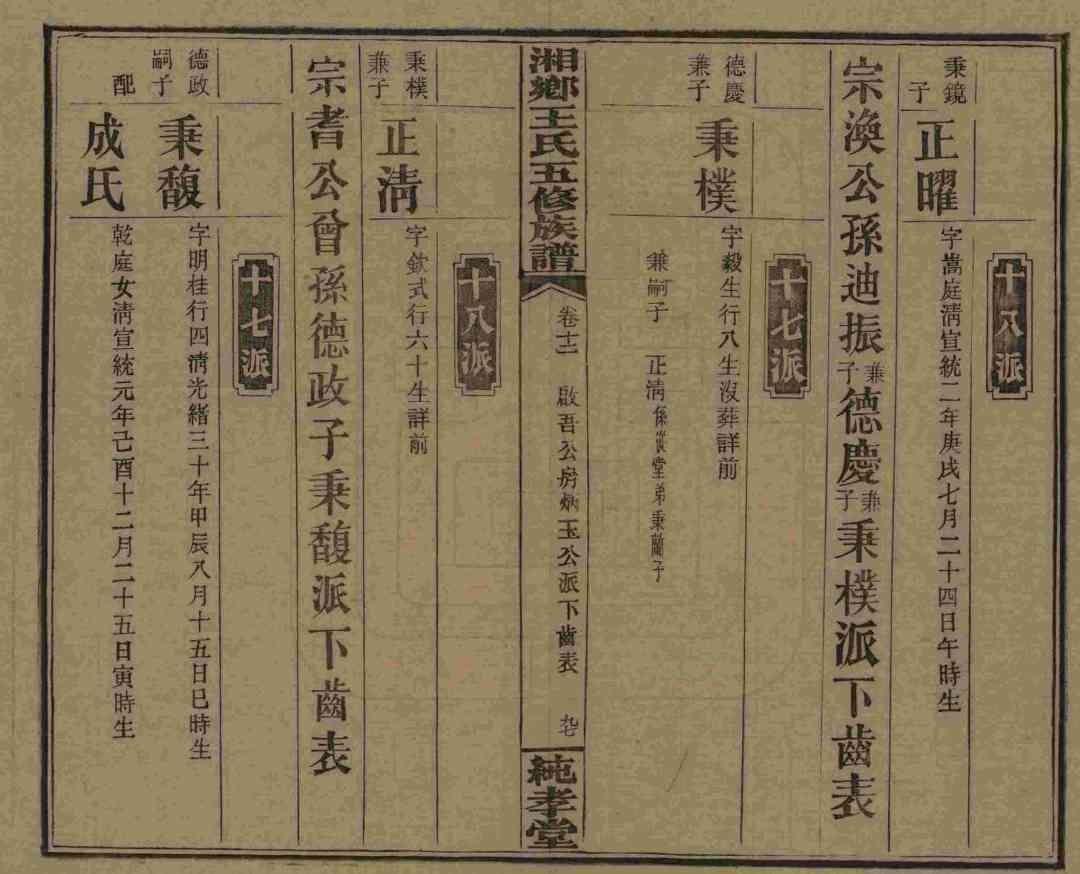 十八派
秉鏡子
正曜
字嵩庭淸宣統二年庚戌七月二十四日午時生
宗渙公孫迪振兼子德慶兼子秉樸派下齒表
十七派
德慶兼子
秉樸
字毅生行八生沒葬詳前
兼嗣子 正淸係從堂弟秉蘭子
湘鄉王氏五修族譜
卷十二
啟吾公房炳玉公派下齒表
純孝堂
十八派
秉樸兼子
正淸
字欽式行六十生詳前
宗耆公曾孫德政子秉馥派下齒表
十七派
德政嗣子
秉馥
字明桂行四淸光緒三十年甲辰八月十五日巳時生
配
成氏
乾庭女淸宣統元年己酉十二月二十五日寅時生